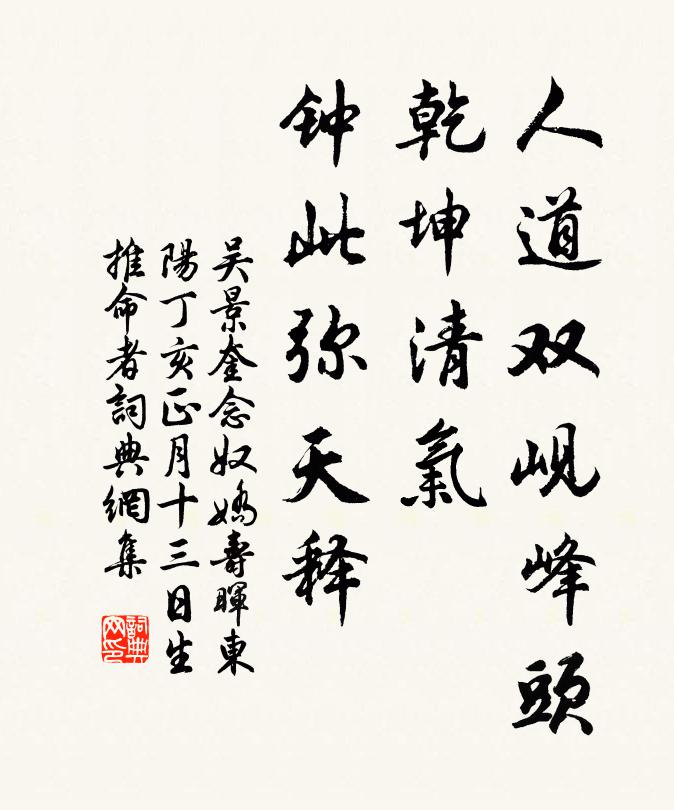 人道双岘峰頭
乾坤清氣
钟此弥天释
吴景奎念奴嬌壽暉東
陽丁亥正月十三日生
推命者詞典網集
詞典网印